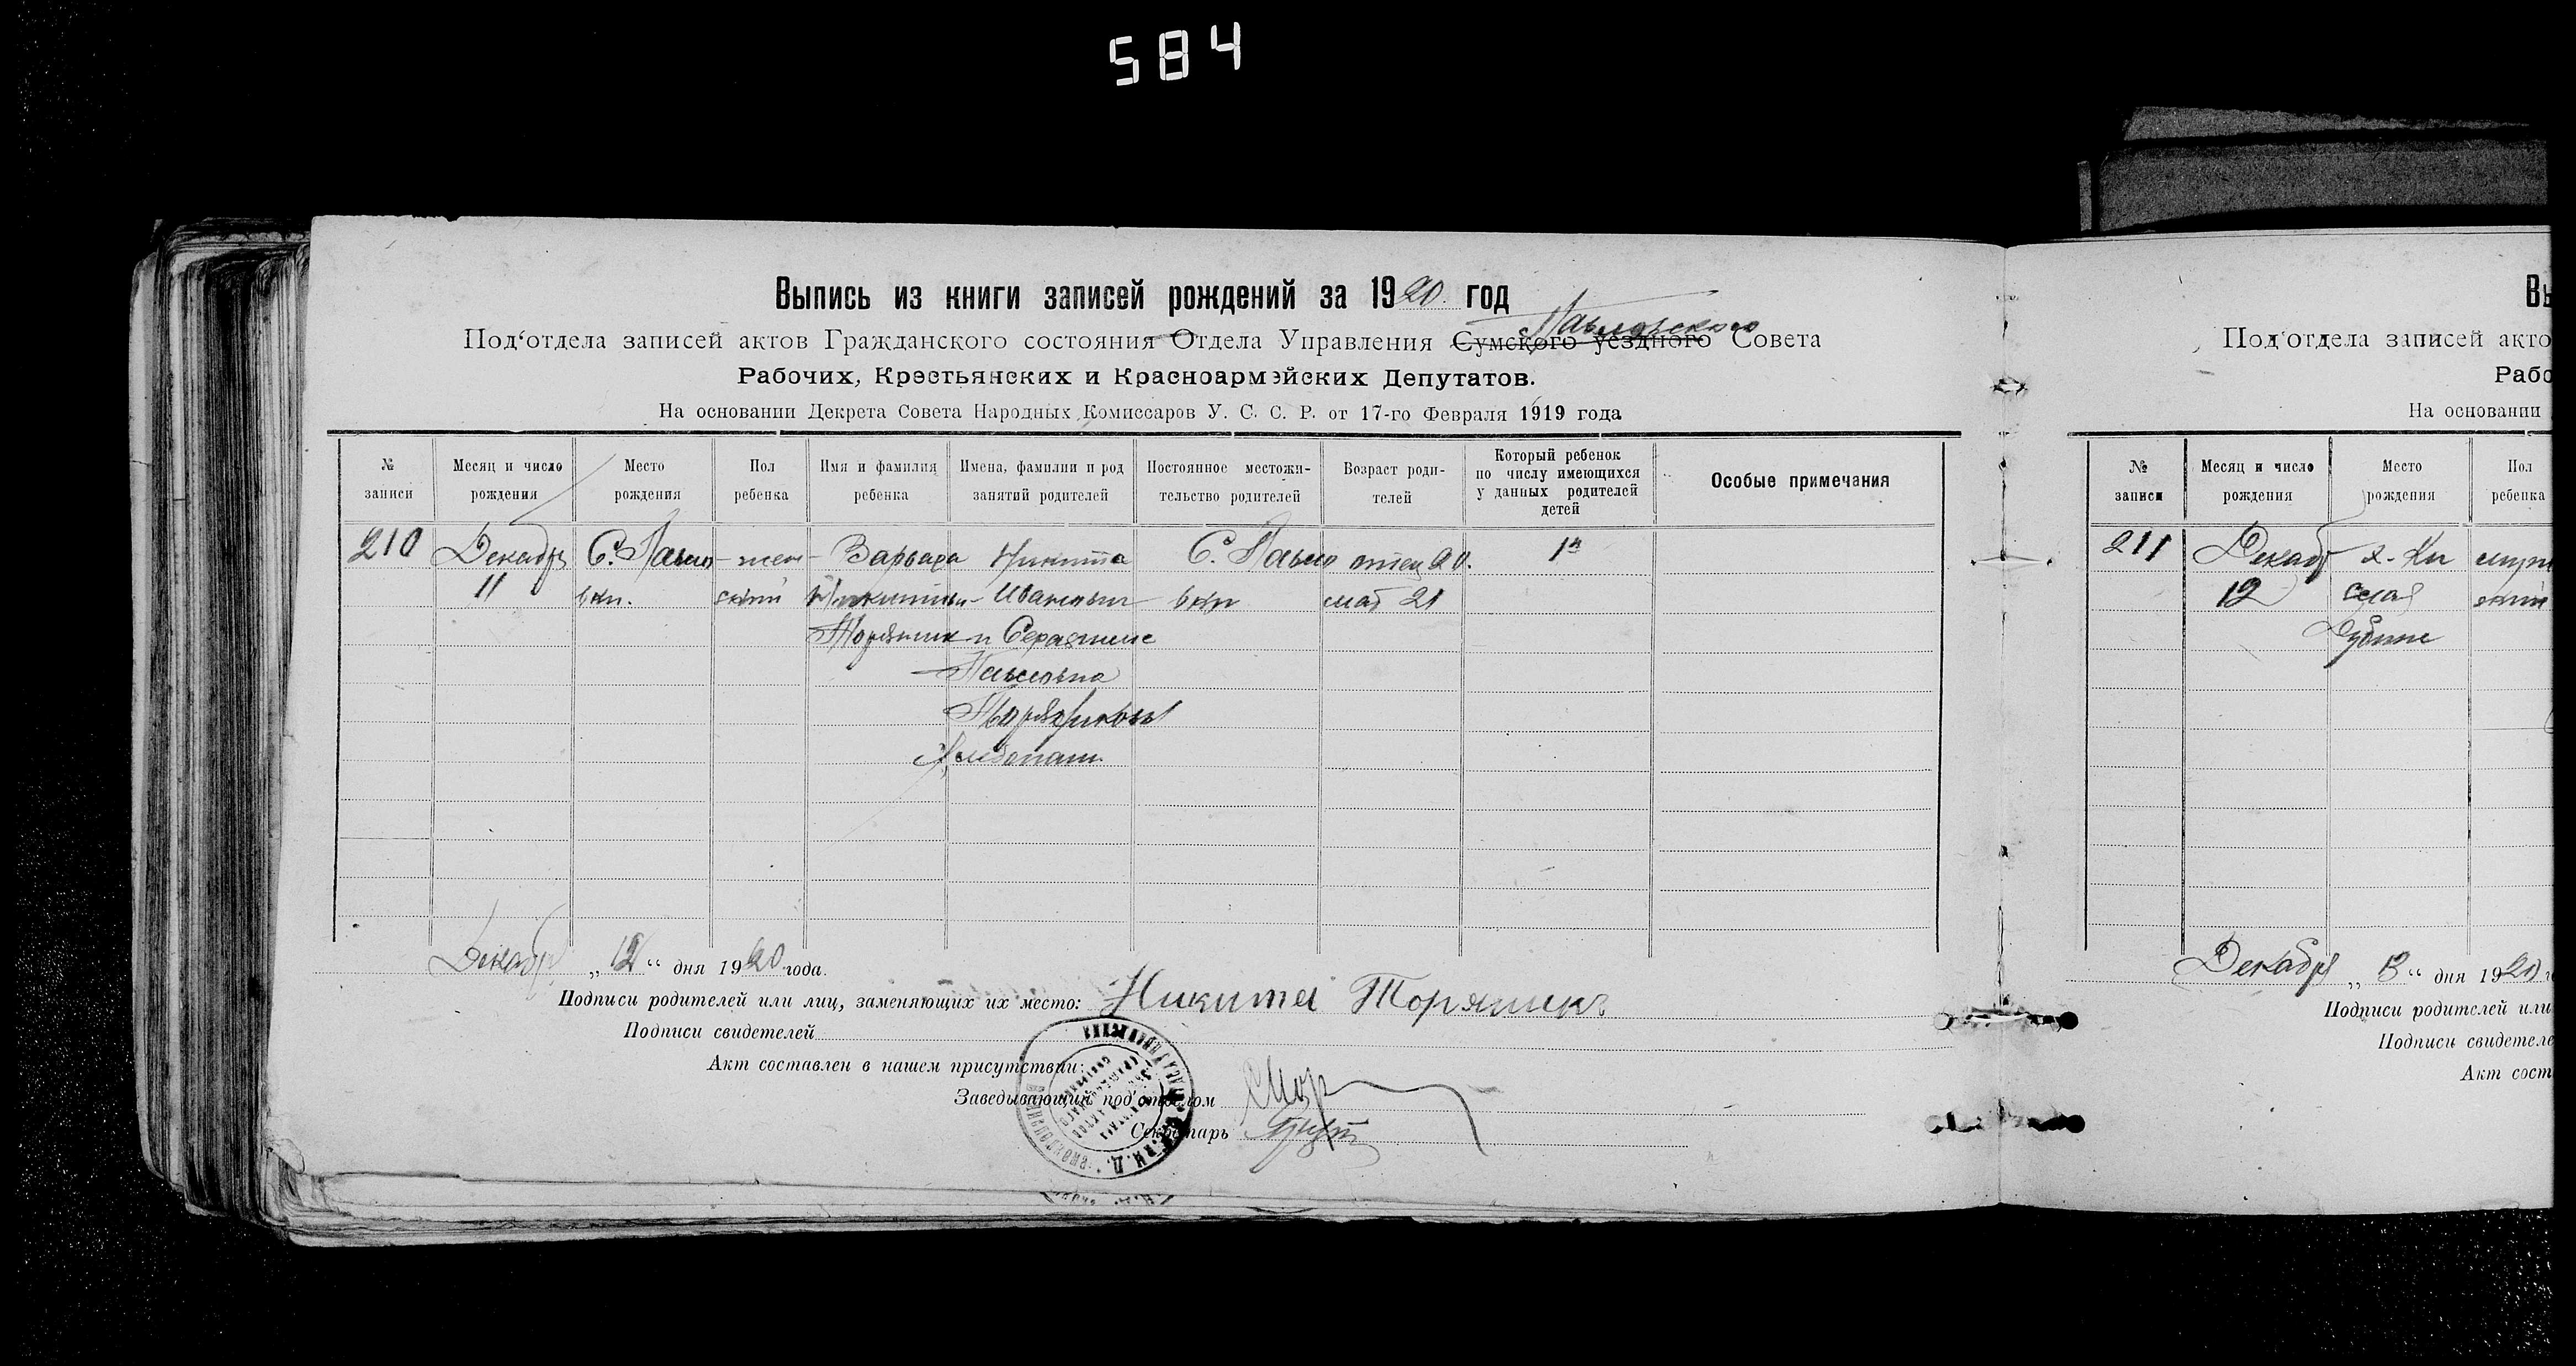 584
Выпись из книги записей рождений за 1920 год
Павловского
Под‘отдела записей актов Гражданского состояния Отдела Управления Сумского уездного Совета
Рабочих, Крестьянских и Красноармейских Депутатов.
На основании Декрета Совета Народных Комиссаров У. С. С. Р. от 17-го Февраля 1919 года
№ записи
Месяц и число рождения
Место рождения
Пол ребенка
Имя и фамилия ребенка
Имена, фамилии и род занятий родителей
Постоянное местожительство родителей
Возраст родителей
Который ребенок по числу имеющихся у данных родителей детей
Особые примечания
210 Декабр С. Павло- жен- Варвара Никита С. Павло отец 20. 1й
11 вки. ский Никитовн Иванович вки мат 21
Торяник и Серафима
Павловна
Торяниковы
Хлебопаш.
Декабр „12“ дня 1920 года.
Подписи родителей или лиц, заменяющих их место: Никита Торяникъ
Подписи свидетелей
Акт составлен в нашем присутствии:
Заведывающий под‘отделом
Секретарь
Вы
Под‘отдела записей акто
Рабо
На основании
№ записи
Месяц и число рождения
Место рождения
Пол ребенка
211 Декабр х. Ки муж
12 ский
Декабря „13“ дня 1920 г
Подписи родителей или
Подписи свидетеле
Акт сост